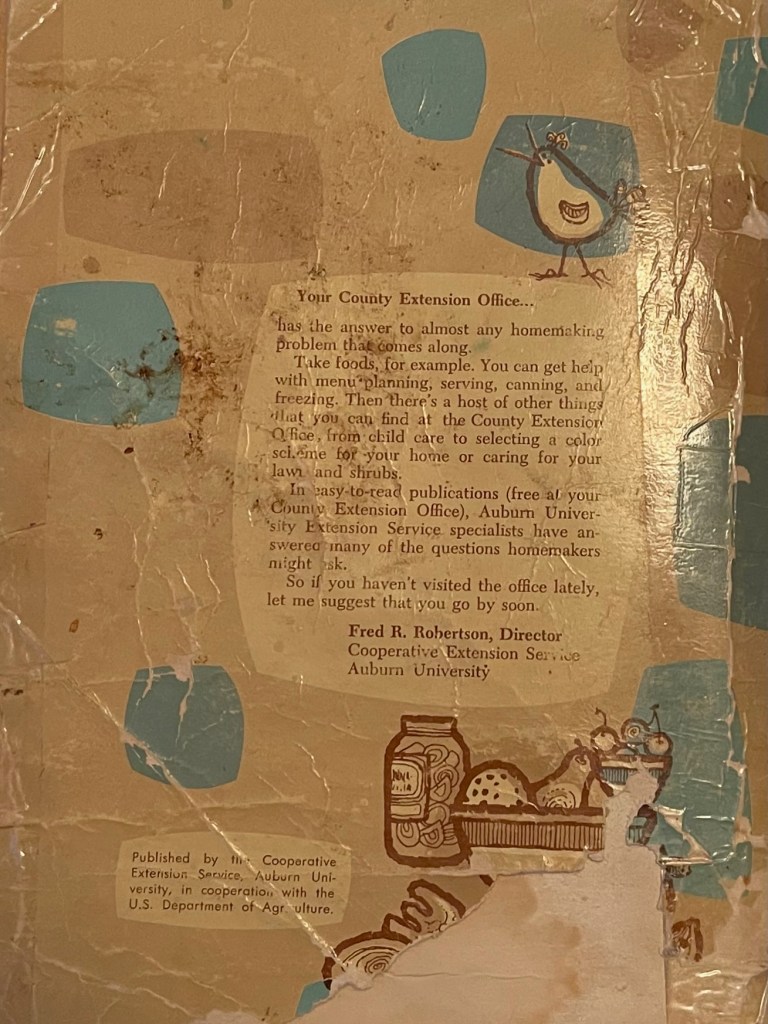 Your County Extension Office...
has the answer to almost any homemaking
problem that comes along.
Take foods, for example. You can get help
with menu planning, serving, canning, and
freezing. Then there's a host of other things
that you can find at the County Extension
Office, from child care to selecting a color
scheme for your home or caring for your
lawn and shrubs.
In easy-to-read publications (free at your
County Extension Office), Auburn Univer-
sity Extension Service specialists have an-
swered many of the questions homemakers
might ask.
So if you haven't visited the office lately,
let me suggest that you go by soon.
Fred R. Robertson, Director
Cooperative Extension Service
Auburn University
Published by the Cooperative
Extension Service, Auburn Uni-
versity, in cooperation with the
U.S. Department of Agriculture.